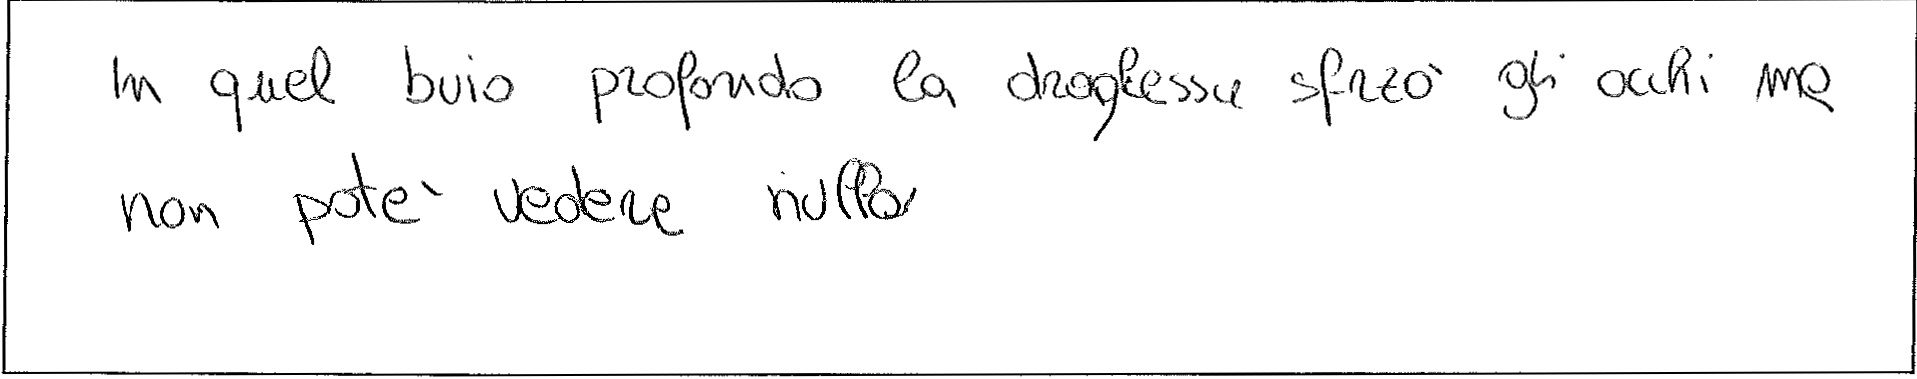 In quel buio profondo la draghessa sfrzò gli occhi ma
non potè vedere nulla